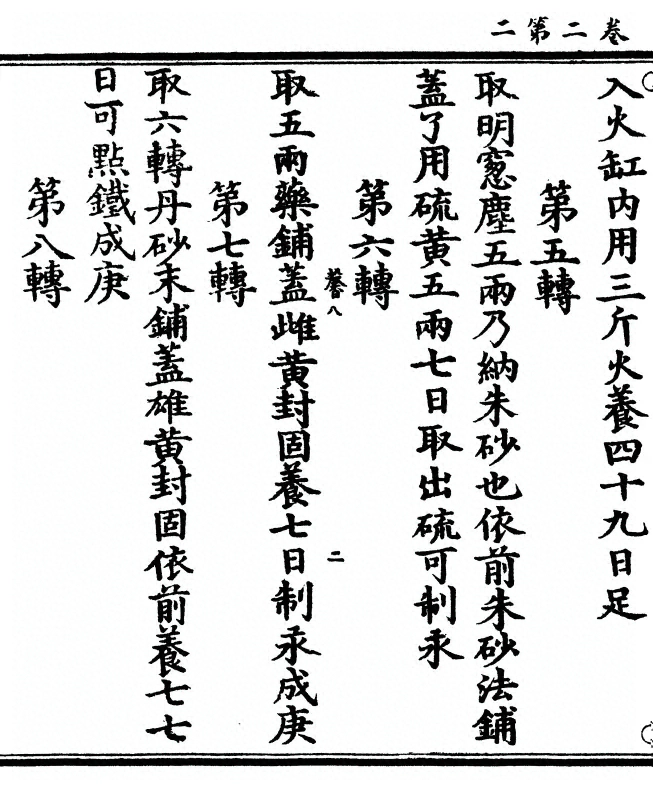 二第二卷
入火缸内用三斤火養四十九日足
第五轉
取明窓塵五兩乃納朱砂也依前朱砂法鋪
蓋了用硫黄五兩七日取出硫可制汞
第六轉
馨八
二
取五兩藥鋪蓋雌黄封固養七日制汞成庚
第七轉
取六轉丹砂末鋪蓋雄黄封固依前養七七
日可點鐵成庚
第八轉